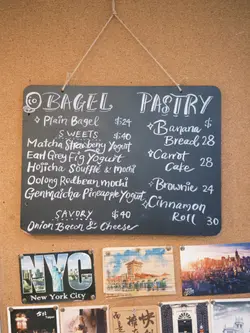 BAGEL
Plain Bagel $24
SWEETS $40
Matcha Strawberry Yogurt
Earl Grey Fig Yogurt
Hojicha Soufflé & mochi
Oolong Redbean mochi
Genmaicha Pineapple Yogurt
SAVORY $40
Onion Bacon & Cheese
PASTRY
Banana Bread 28
Carrot Cake 28
Brownie 24
Cinnamon Roll 30
NYC
New York City